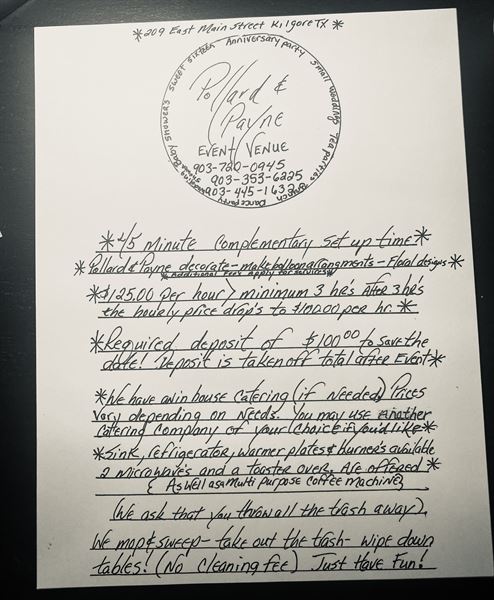 *209 East Main Street Kilgore TX *
Baby Showers Sweet Sixteen Anniversary party Small Wedding Tea parties Brunch Dance party
Pollard &
Payne
EVENT VENUE
903-720-0945
903-353-6225
903-445-1632
*45 minute Complementary Set up time*
*Pollard & Payne decorate - make balloon arrangments - Floral designs*
* additional fees apply for services *
*$125.00 Per hour} minimum 3 hr's After 3 hr's
the hourly price drop's to $100.00 per hr. *
*Required deposit of $100.00 to save the
date! Deposit is taken off total after Event*
*We have a win house Catering (if Needed) Prices
Vary depending on Needs. You may use another
Catering Company of your Choice if you'd like*
*Sink, refrigerator, warmer plates & burner's available
2 microwave's and a toaster over, Are offered *
{ As well as a multi purpose coffee machine}
(We ask that you throw all the trash away).
We mop & sweep - take out the trash - wipe down
tables! (No Cleaning fee) Just Have Fun!